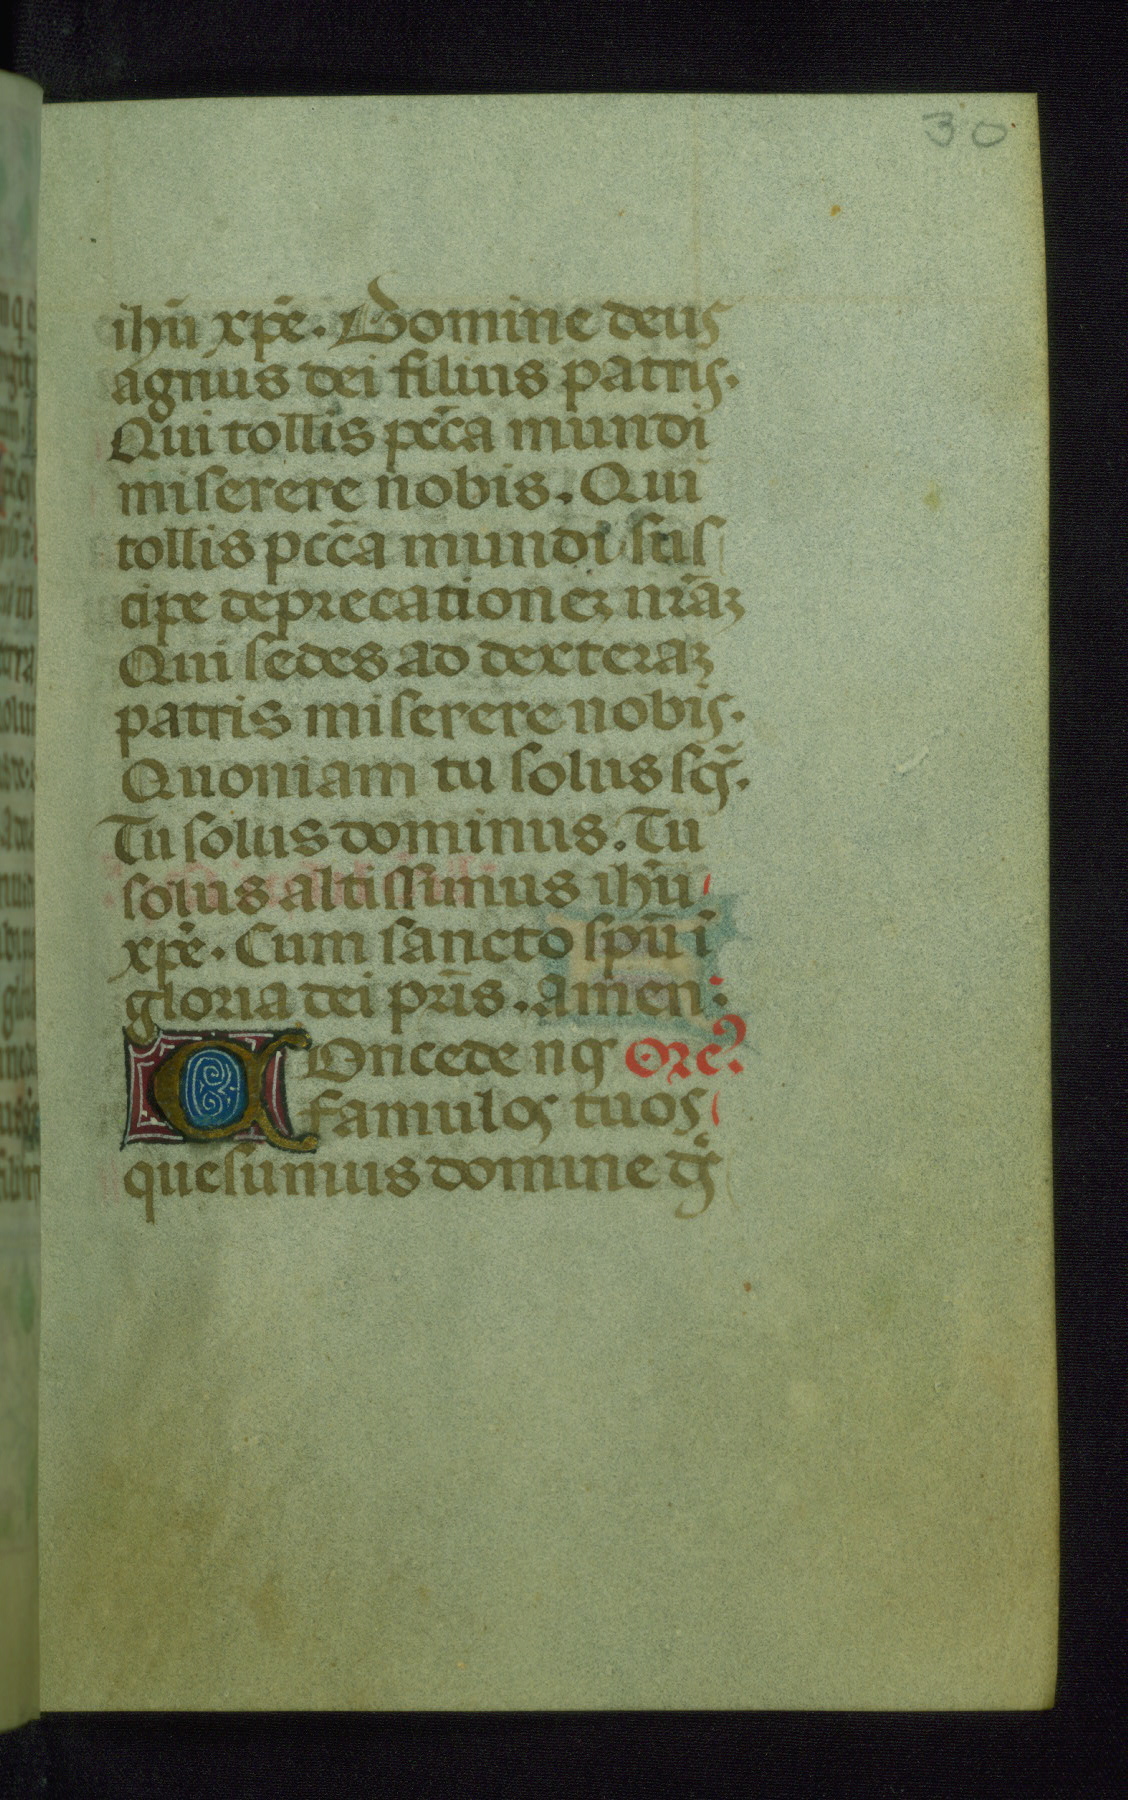 30
ihū xp̄e. Domine deus
agnus dei filius patris.
Qui tollis pcc̄a mundi
miserere nobis. Qui
tollis pcc̄a mundi sus
cipe deprecationeꝫ nr̄aꝫ
Qui sedes ad dexteraꝫ
patris miserere nobis.
Quoniam tu solus scꝰ̄.
Tu solus dominus. Tu
solus altissimus ihū
xp̄e. Cum sancto spū i
gloria dei pr̄is. amen.
Concede nos Orō.
famulos tuos
quesumus domine